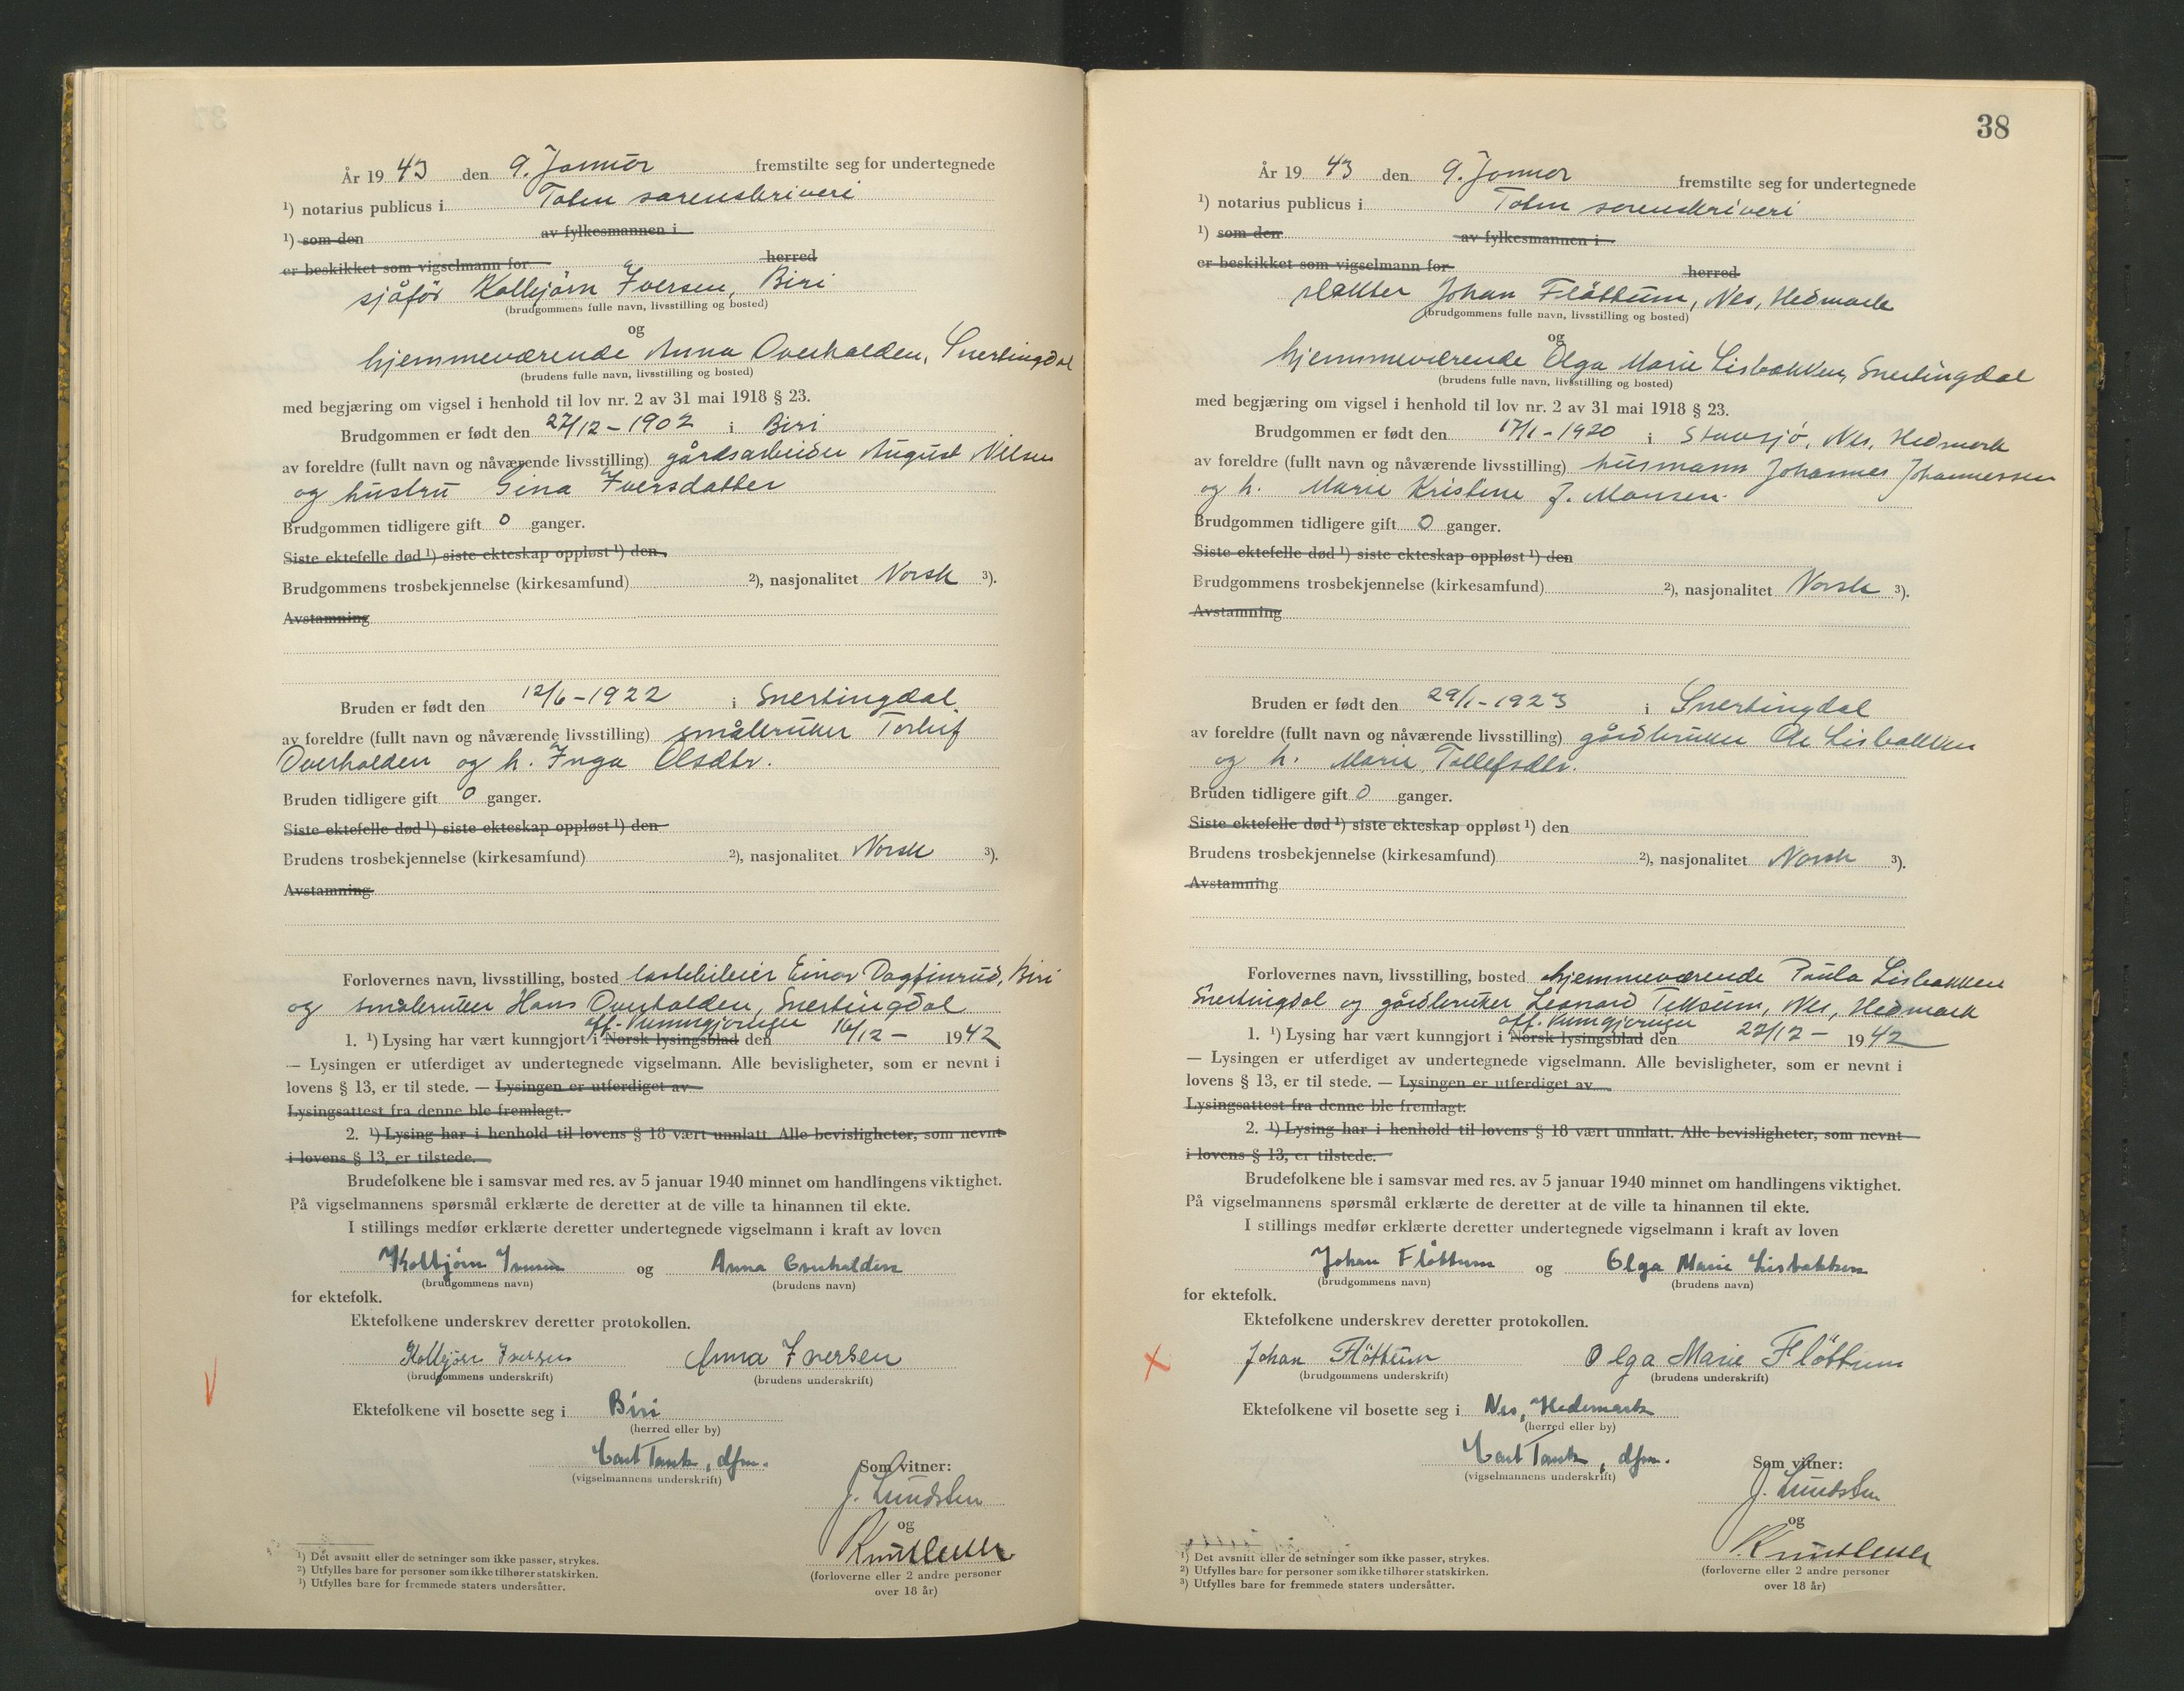 År 1943 den 9. Januar fremstilte seg for undertegnede
¹) notarius publicus i Toten sorenskriveri
¹) som den av fylkesmannen i
er beskikket som vigselmann for herred
sjåfør Kolbjørn Iversen, Biri
(brudgommens fulle navn, livsstilling og bosted)
og
hjemmeværende Anna Overhalden, Snertingdal
(brudens fulle navn, livsstilling og bosted)
med begjæring om vigsel i henhold til lov nr. 2 av 31 mai 1918 § 23.
Brudgommen er født den 27/12 - 1902 i Biri
av foreldre (fullt navn og nåværende livsstilling) gårdsarbeider August Nilsen
og hustru Gina Iversdatter
Brudgommen tidligere gift 0 ganger.
Siste ektefelle død ¹) siste ekteskap oppløst ¹) den
Brudgommens trosbekjennelse (kirkesamfund) ²), nasjonalitet Norsk ³).
Avstamning
Bruden er født den 12/6 - 1922 i Snertingdal
av foreldre (fullt navn og nåværende livsstilling) småbruker Torleif
Overhalden og h. Inga Olsdtr.
Bruden tidligere gift 0 ganger.
Siste ektefelle død ¹) siste ekteskap oppløst ¹) den
Brudens trosbekjennelse (kirkesamfund) ²), nasjonalitet Norsk ³).
Avstamning
Forlovernes navn, livsstilling, bosted lastebileier Einar Dagfinrud, Biri
og småbruker Hans Overhalden, Snertingdal
off. kunngjøringer
1. ¹) Lysing har vært kunngjort i Norsk lysingsblad den 16/12 - 1942
— Lysingen er utferdiget av undertegnede vigselmann. Alle bevisligheter, som er nevnt i
lovens § 13, er til stede. — Lysingen er utferdiget av
Lysingsattest fra denne ble fremlagt.
2. ¹) Lysing har i henhold til lovens § 18 vært unnlatt. Alle bevisligheter, som nevnt
i lovens § 13, er tilstede.
Brudefolkene ble i samsvar med res. av 5 januar 1940 minnet om handlingens viktighet.
På vigselmannens spørsmål erklærte de deretter at de ville ta hinannen til ekte.
I stillings medfør erklærte deretter undertegnede vigselmann i kraft av loven
Kolbjørn Iversen og Anna Overhalden
(brudgommens navn) (brudens navn)
for ektefolk.
Ektefolkene underskrev deretter protokollen.
Kolbjørn Iversen Anna Iversen
(brudgommens underskrift) (brudens underskrift)
Ektefolkene vil bosette seg i Biri
(herred eller by)
Carl Tank, dfm.
(vigselmannens underskrift) Som vitner:
J. Lundsten
og
(forloverne eller 2 andre personer
over 18 år)
¹) Det avsnitt eller de setninger som ikke passer, strykes.
²) Utfylles bare for personer som ikke tilhører statskirken.
³) Utfylles bare for fremmede staters undersåtter.
38
År 1943 den 9. Januar fremstilte seg for undertegnede
¹) notarius publicus i Toten sorenskriveri
¹) som den av fylkesmannen i
er beskikket som vigselmann for herred
slakter Johan Fløttum, Nes, Hedmark
(brudgommens fulle navn, livsstilling og bosted)
og
hjemmeværende Olga Marie Lisbakken, Snertingdal
(brudens fulle navn, livsstilling og bosted)
med begjæring om vigsel i henhold til lov nr. 2 av 31 mai 1918 § 23.
Brudgommen er født den 17/1 - 1920 i Stavsjø, Nes, Hedmark
av foreldre (fullt navn og nåværende livsstilling) husmann Johannes Johannessen
og h. Marie Kristine J. Monsen.
Brudgommen tidligere gift 0 ganger.
Siste ektefelle død ¹) siste ekteskap oppløst ¹) den
Brudgommens trosbekjennelse (kirkesamfund) ²), nasjonalitet Norsk ³).
Avstamning
Bruden er født den 29/1 - 1923 i Snertingdal
av foreldre (fullt navn og nåværende livsstilling) gårdbruker Ole Lisbakken
og h. Marie Tollefsdtr.
Bruden tidligere gift 0 ganger.
Siste ektefelle død ¹) siste ekteskap oppløst ¹) den
Brudens trosbekjennelse (kirkesamfund) ²), nasjonalitet Norsk ³).
Avstamning
Forlovernes navn, livsstilling, bosted hjemmeværende Paula Lisbakken
Snertingdal og gårdbruker Leonard Teksum, Nes, Hedmark
off. kunngjøringer
1. ¹) Lysing har vært kunngjort i Norsk lysingsblad den 22/12 - 1942
— Lysingen er utferdiget av undertegnede vigselmann. Alle bevisligheter, som er nevnt i
lovens § 13, er til stede. — Lysingen er utferdiget av
Lysingsattest fra denne ble fremlagt.
2. ¹) Lysing har i henhold til lovens § 18 vært unnlatt. Alle bevisligheter, som nevnt
i lovens § 13, er tilstede.
Brudefolkene ble i samsvar med res. av 5 januar 1940 minnet om handlingens viktighet.
På vigselmannens spørsmål erklærte de deretter at de ville ta hinannen til ekte.
I stillings medfør erklærte deretter undertegnede vigselmann i kraft av loven
Johan Fløttum og Olga Marie Lisbakken
(brudgommens navn) (brudens navn)
for ektefolk.
Ektefolkene underskrev deretter protokollen.
Johan Fløttum Olga Marie Fløttum
(brudgommens underskrift) (brudens underskrift)
Ektefolkene vil bosette seg i Nes, Hedemark
(herred eller by)
Carl Tank, dfm.
(vigselmannens underskrift) Som vitner:
J. Lundsten
og
(forloverne eller 2 andre personer
over 18 år)
¹) Det avsnitt eller de setninger som ikke passer, strykes.
²) Utfylles bare for personer som ikke tilhører statskirken.
³) Utfylles bare for fremmede staters undersåtter.